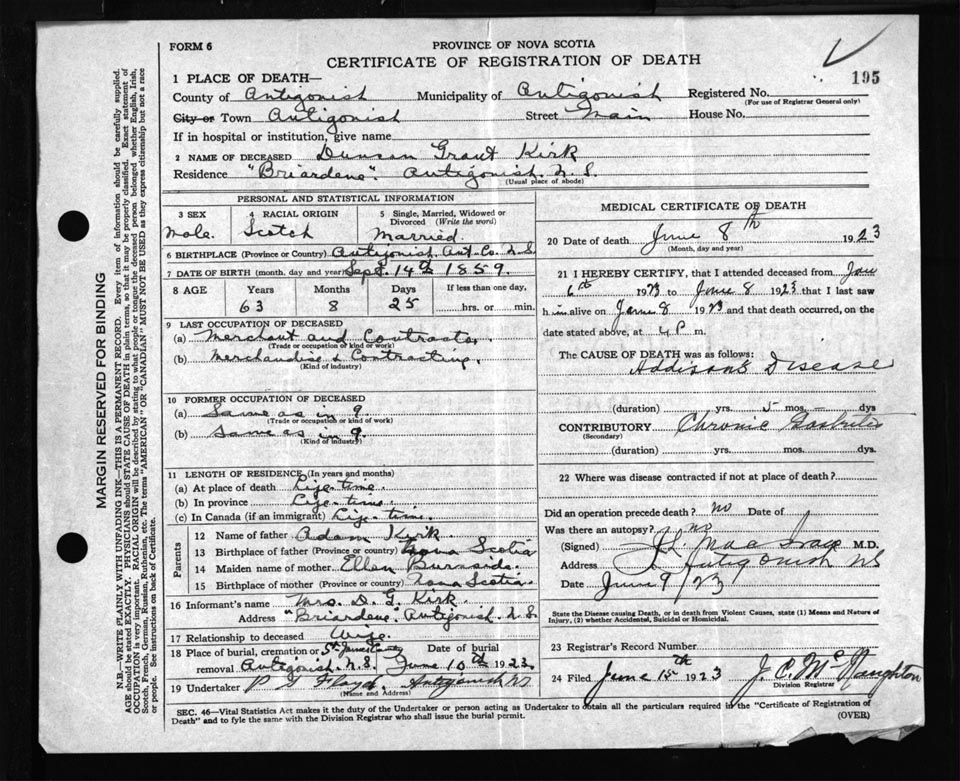 FORM 6
PROVINCE OF NOVA SCOTIA
CERTIFICATE OF REGISTRATION OF DEATH
195
1 PLACE OF DEATH—
County of Antigonish Municipality of Antigonish Registered No.
(For use of Registrar General only)
City or Town Antigonish Street Main House No.
If in hospital or institution, give name
2 NAME OF DECEASED Duncan Grant Kirk
Residence "Briardene". Antigonish. N.S.
(Usual place of abode)
PERSONAL AND STATISTICAL INFORMATION
3 SEX 4 RACIAL ORIGIN 5 Single, Married, Widowed or Divorced (Write the word)
Male. Scotch Married.
6 BIRTHPLACE (Province or Country) Antigonish. Ant. Co. N.S.
7 DATE OF BIRTH (month, day and year) Sept. 14th 1859.
8 AGE Years Months Days If less than one day,
63 8 25 hrs. or min.
9 LAST OCCUPATION OF DECEASED
(a) Merchant and Contractor
(Trade or occupation or kind of work)
(b) Merchandise & Contracting.
(Kind of industry)
10 FORMER OCCUPATION OF DECEASED
(a) Same as in 9.
(Trade or occupation or kind of work)
(b) Same as in 9.
(Kind of industry)
11 LENGTH OF RESIDENCE (In years and months)
(a) At place of death Life-time.
(b) In province Life-time.
(c) In Canada (if an immigrant) Life-time.
Parents
12 Name of father Adam Kirk.
13 Birthplace of father (Province or country) Nova Scotia
14 Maiden name of mother Ellen Burnside.
15 Birthplace of mother (Province or country) Nova Scotia.
16 Informant's name Mrs. D. G. Kirk.
Address "Briardene". Antigonish. N.S.
17 Relationship to deceased Wife.
18 Place of burial, cremation or St. James Date of burial
removal Antigonish. N.S. June 10th 1923.
19 Undertaker Floyd. Antigonish NS
(Name and Address)
MEDICAL CERTIFICATE OF DEATH
20 Date of death June 8th 1923
(Month, day and year)
21 I HEREBY CERTIFY, that I attended deceased from Jan
6th 1923 to June 8 1923 that I last saw
him alive on June 8 1923 and that death occurred, on the
date stated above, at 4 P. m.
The CAUSE OF DEATH was as follows:
Addison's Disease
(duration) yrs. 5 mos. – dys
CONTRIBUTORY Chronic Gastritis
(Secondary)
(duration) yrs. mos. dys.
22 Where was disease contracted if not at place of death?
Did an operation precede death? no Date of
Was there an autopsy? no
(Signed) M.D.
Address Antigonish NS
Date June 9/23
State the Disease causing Death, or in death from Violent Causes, state (1) Means and Nature of
Injury, (2) whether Accidental, Suicidal or Homicidal.
23 Registrar's Record Number
24 Filed June 15th 1923 J. C. McNaughton
Division Registrar
SEC. 46—Vital Statistics Act makes it the duty of the Undertaker or person acting as Undertaker to obtain all the particulars required in the "Certificate of Registration of
Death" and to fyle the same with the Division Registrar who shall issue the burial permit.
(OVER)
MARGIN RESERVED FOR BINDING
N.B.—WRITE PLAINLY WITH UNFADING INK—THIS IS A PERMANENT RECORD. Every item of information should be carefully supplied.
AGE should be stated EXACTLY. PHYSICIANS should STATE CAUSE OF DEATH in plain terms, so that it may be properly classified. Exact statement of
OCCUPATION is very important. RACIAL ORIGIN will be described by stating to what people or tongue the deceased person belonged whether English, Irish,
Scotch, French, German, Russian, Ruthenian, etc. The terms "AMERICAN" OR "CANADIAN" MUST NOT BE USED as they express citizenship but not a race
or people. See instructions on back of Certificate.